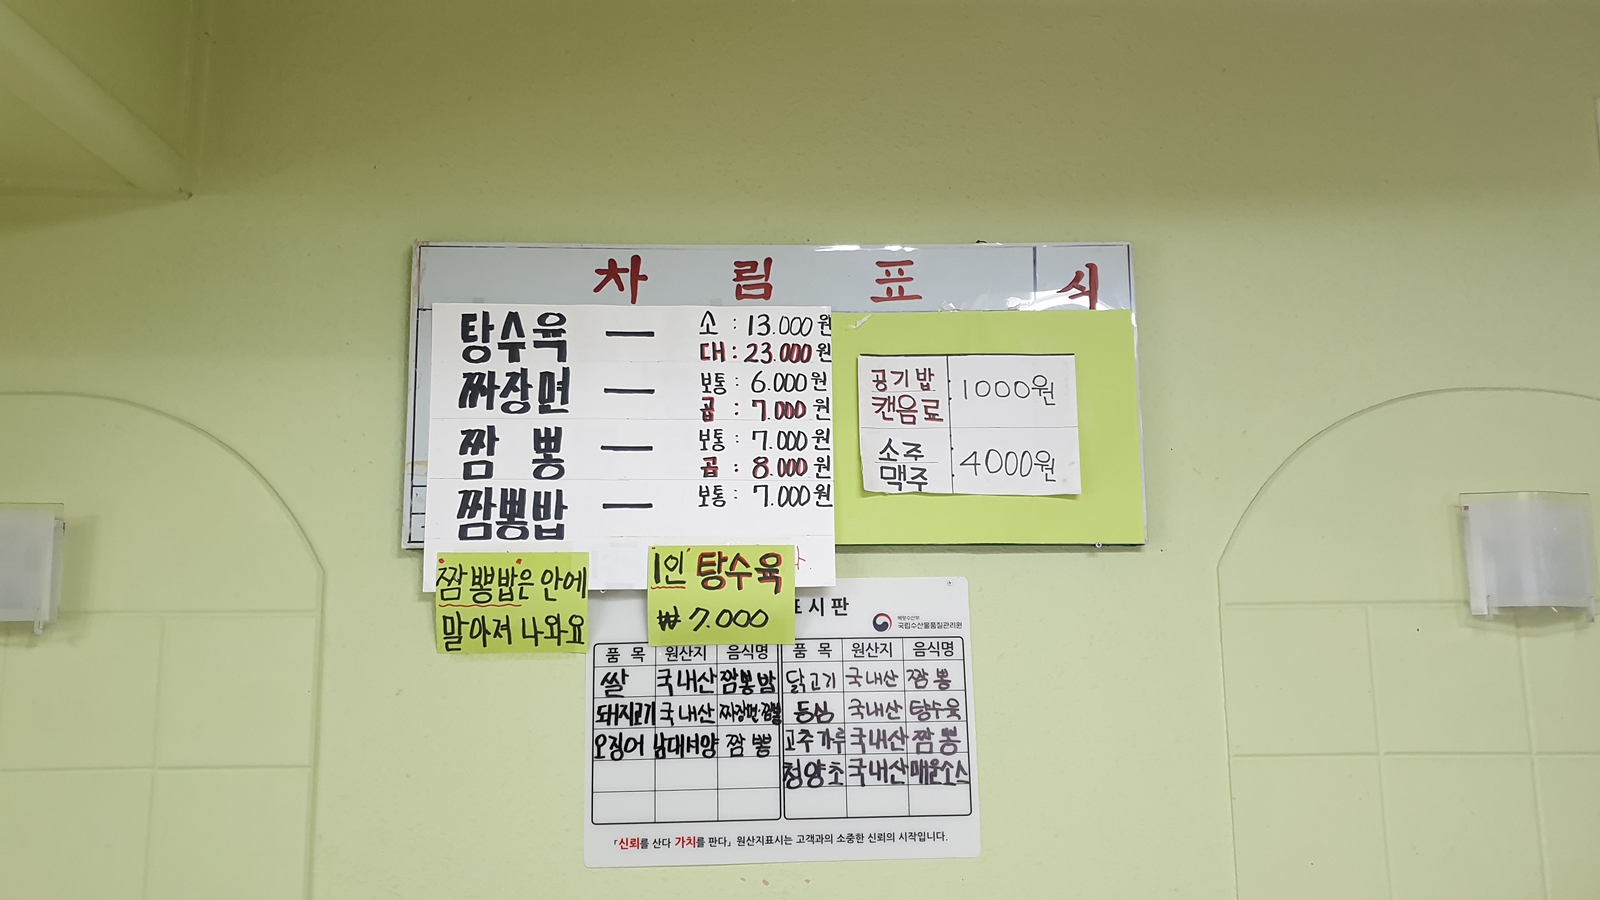 차 림 표 식
탕수육 — 소 : 13.000원
대 : 23.000원
짜장면 — 보통 : 6.000원
곱 : 7.000원
짬 뽕 — 보통 : 7.000원
곱 : 8.000원
짬뽕밥 — 보통 : 7.000원
공기밥
캔음료 1000원
소주
맥주 4000원
짬뽕밥은 안에
말아져 나와요
1인 탕수육
₩ 7.000
표시판
해양수산부
국립수산물품질관리원
품 목 원산지 음식명 품 목 원산지 음식명
쌀 국내산 짬뽕밥 닭고기 국내산 짬뽕
돼지고기 국내산 짜장면·짬뽕 등심 국내산 탕수육
오징어 남대서양 짬뽕 고추가루 국내산 짬뽕
청양초 국내산 매운소스
「신뢰를 산다 가치를 판다」 원산지표시는 고객과의 소중한 신뢰의 시작입니다.